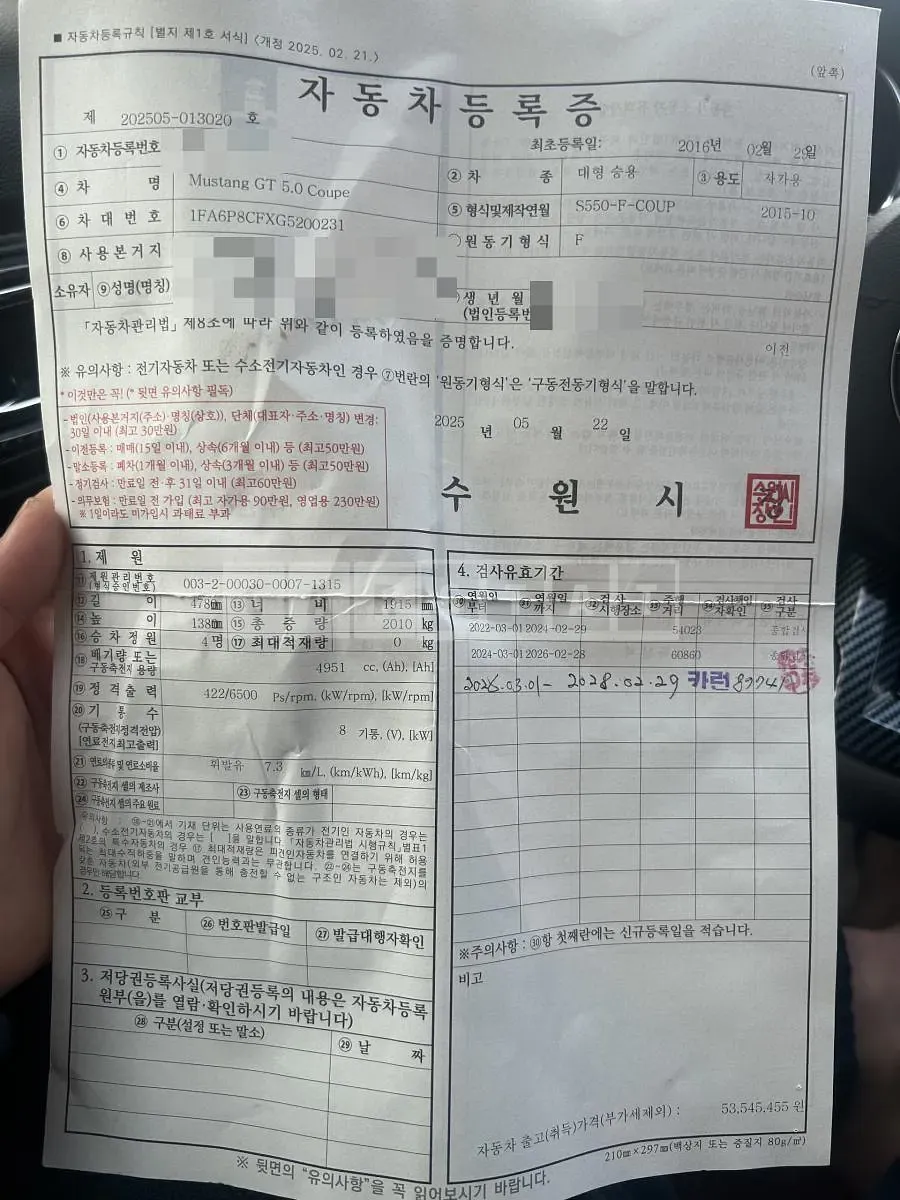 ■ 자동차등록규칙 [별지 제1호 서식] <개정 2025. 02. 21.>
(앞쪽)
자동차등록증
제 202505-013020 호
최초등록일: 2016년 02월 29일
① 자동차등록번호
② 차 종 대형 승용 ③ 용도 자가용
④ 차 명 Mustang GT 5.0 Coupe
⑤ 형식및제작연월 S550-F-COUP 2015-10
⑥ 차대번호 1FA6P8CFXG5200231
원동기형식 F
⑧ 사용본거지
소유자 ⑨ 성명(명칭)
생년월
(법인등록번
「자동차관리법」 제8조에 따라 위와 같이 등록하였음을 증명합니다.
이전
※ 유의사항 : 전기자동차 또는 수소전기자동차인 경우 ⑦번란의 '원동기형식'은 '구동전동기형식'을 말합니다.
* 이것만은 꼭! (* 뒷면 유의사항 필독)
- 법인(사용본거지(주소)·명칭(상호)), 단체(대표자·주소·명칭) 변경:
30일 이내 (최고 30만원)
- 이전등록 : 매매(15일 이내), 상속(6개월 이내) 등 (최고50만원)
- 말소등록 : 폐차(1개월 이내), 상속(3개월 이내) 등 (최고50만원)
- 정기검사 : 만료일 전·후 31일 이내 (최고60만원)
- 의무보험 : 만료일 전 가입 (최고 자가용 90만원, 영업용 230만원)
※ 1일이라도 미가입시 과태료 부과
2025 년 05 월 22 일
수 원 시 장
1. 제 원
⑪ 제원관리번호
(형식승인번호) 003-2-00030-0007-1315
⑫ 길 이 478㎜ ⑬ 너 비 1915 ㎜
⑭ 높 이 138㎜ ⑮ 총 중 량 2010 kg
⑯ 승차정원 4 명 ⑰ 최대적재량 0 kg
⑱ 배기량 또는
구동축전지 용량 4951 cc, (Ah), [Ah]
⑲ 정격출력 422/6500 Ps/rpm, (kW/rpm), [kW/rpm]
⑳ 기 통 수
(구동축전지정격전압)
[연료전지최고출력] 8 기통, (V), [kW]
㉑ 연료의종류 및 연료소비율 휘발유 7.3 ㎞/L, (km/kWh), [km/kg]
㉒ 구동축전지 셀의 제조사 ㉓ 구동축전지 셀의 형태
㉔ 구동축전지 셀의 주요 원료
유의사항 : ⑱~㉑에서 기재 단위는 사용연료의 종류가 전기인 자동차의 경우는
( ), 수소전기자동차의 경우는 [ ]을 말합니다. 「자동차관리법 시행규칙」 별표1
제2호의 특수자동차의 경우 ⑰ 최대적재량은 피견인자동차를 연결하기 위해 허용
되는 최대수직하중을 말하며 견인능력과는 무관합니다. ㉒~㉔는 구동축전지를
갖춘 자동차(외부 전기공급원을 통해 충전할 수 없는 구조인 자동차는 제외)의
경우만 해당합니다.
2. 등록번호판 교부
㉕ 구 분 ㉖ 번호판발급일 ㉗ 발급대행자확인
3. 저당권등록사실(저당권등록의 내용은 자동차등록
원부(을)를 열람·확인하시기 바랍니다)
㉘ 구분(설정 또는 말소) ㉙ 날 짜
4. 검사유효기간
㉚ 연월일
부터 ㉛ 연월일
까지 ㉜ 검사
시행장소 ㉝ 주행
거리 ㉞ 검사책임
자확인 ㉟ 검사
구분
2022-03-01 2024-02-29 54023 종합검사
2024-03-01 2026-02-28 60860
2026.03.01- 2028.02.29 카런
※주의사항 : ㉚항 첫째란에는 신규등록일을 적습니다.
비고
자동차 출고(취득)가격(부가세제외) : 53,545,455 원
210㎜×297㎜(백상지 또는 중질지 80g/㎡)
※ 뒷면의 "유의사항"을 꼭 읽어보시기 바랍니다.